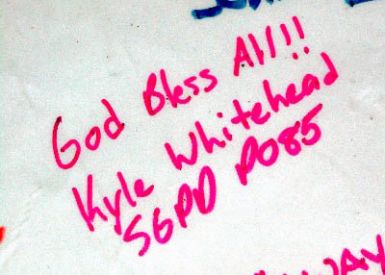 God Bless All!!!
Kyle Whitehead
SGPD P085
WAY